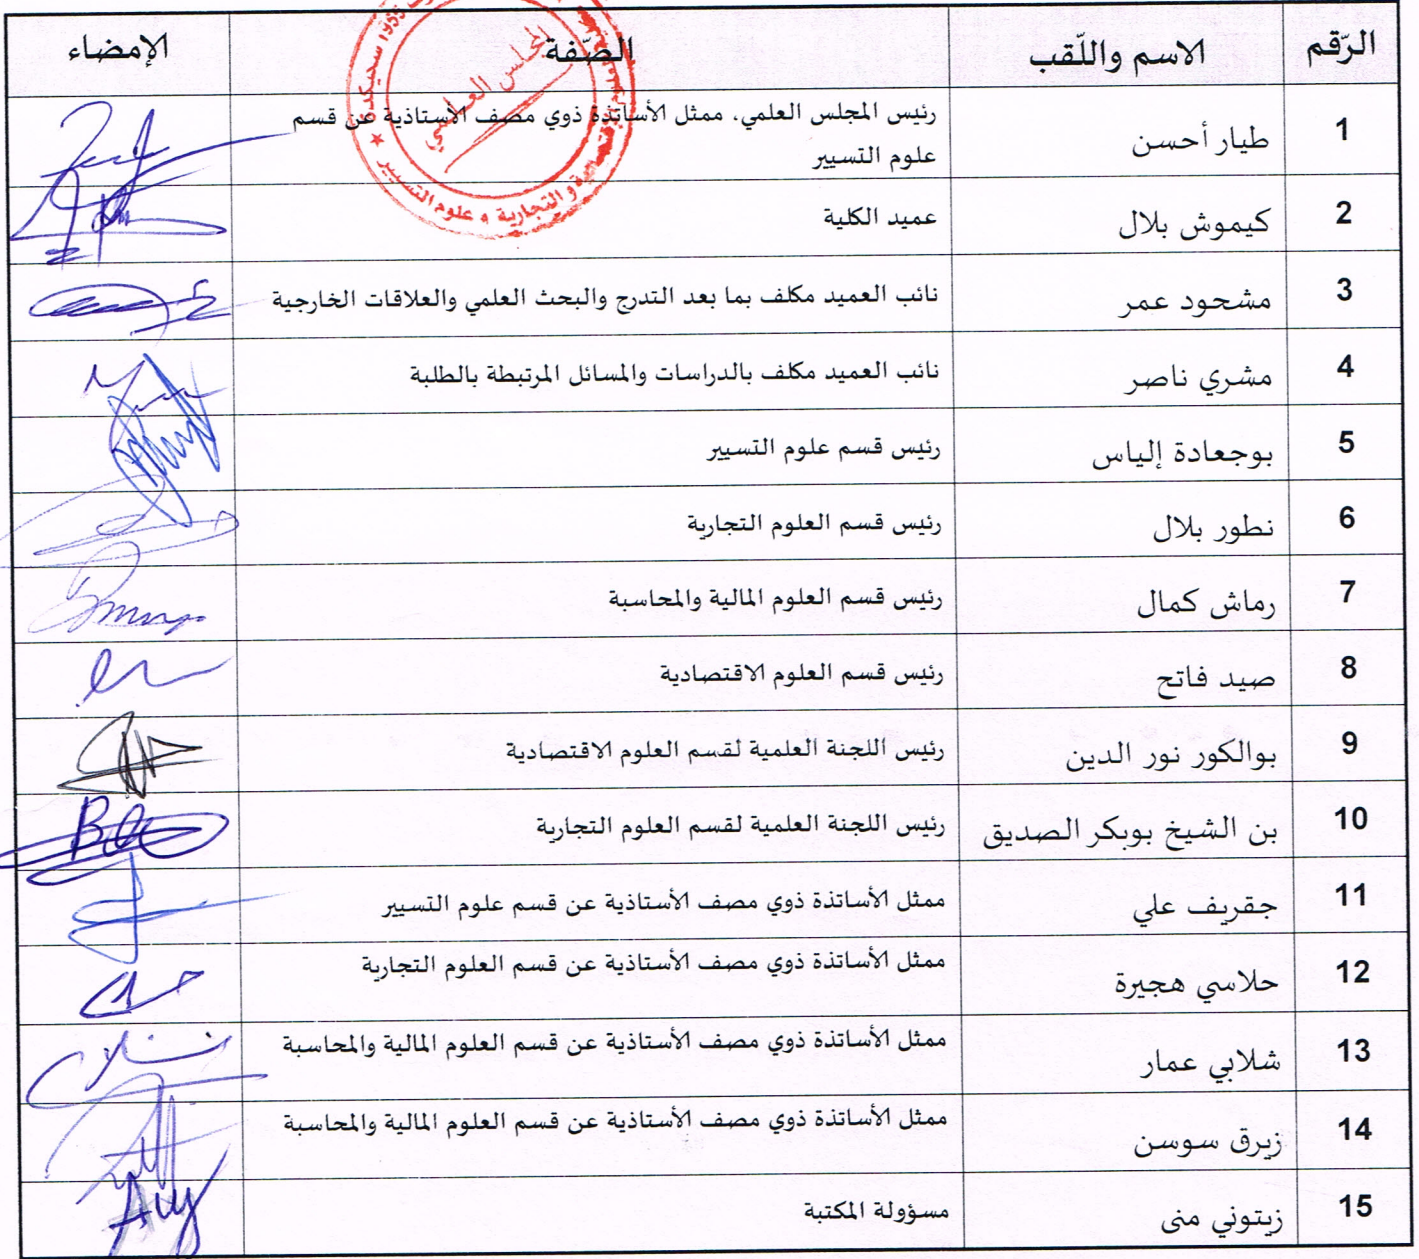 الرّقم الاسم واللّقب الصّفة الإمضاء
1 طيار أحسن رئيس المجلس العلمي، ممثل الأساتذة ذوي مصف الأستاذية عن قسم
علوم التسيير
2 كيموش بلال عميد الكلية
3 مشحود عمر نائب العميد مكلف بما بعد التدرج والبحث العلمي والعلاقات الخارجية
4 مشري ناصر نائب العميد مكلف بالدراسات والمسائل المرتبطة بالطلبة
5 بوجعادة إلياس رئيس قسم علوم التسيير
6 نطور بلال رئيس قسم العلوم التجارية
7 رماش كمال رئيس قسم العلوم المالية والمحاسبة
8 صيد فاتح رئيس قسم العلوم الاقتصادية
9 بوالكور نور الدين رئيس اللجنة العلمية لقسم العلوم الاقتصادية
10 بن الشيخ بوبكر الصديق رئيس اللجنة العلمية لقسم العلوم التجارية
11 جقريف علي ممثل الأساتذة ذوي مصف الأستاذية عن قسم علوم التسيير
12 حلاسي هجيرة ممثل الأساتذة ذوي مصف الأستاذية عن قسم العلوم التجارية
13 شلابي عمار ممثل الأساتذة ذوي مصف الأستاذية عن قسم العلوم المالية والمحاسبة
14 زيرق سوسن ممثل الأساتذة ذوي مصف الأستاذية عن قسم العلوم المالية والمحاسبة
15 زيتوني منى مسؤولة المكتبة
المجلس العلمي
والتجارية و علوم التسيير
1955 سكيكدة